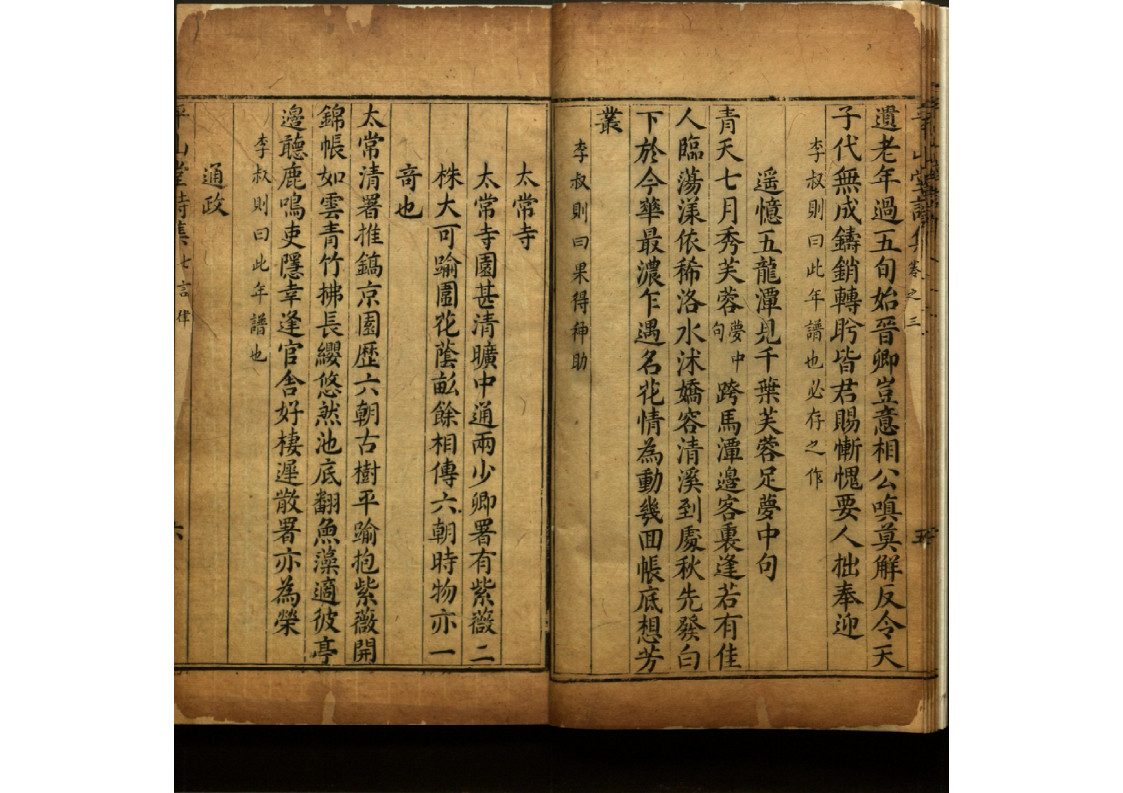 遺老年過五旬始晉卿豈意相公嗔莫解反令天
子代無成鑄銷轉盻皆君賜慚愧要人拙奉迎
李叔則曰此年譜也必存之作
遥憶五龍潭見千葉芙蓉足夢中句
青天七月秀芙蓉夢中句跨馬潭邉客裏逢若有佳
人臨蕩漾依稀洛水沭嬌容清溪到處秋先發白
下於今華最濃乍遇名花情為動幾回帳底想芳
叢
李叔則曰果得神助
太常寺
太常寺園甚清曠中通兩少卿署有紫薇二
株大可踰圍花蔭畝餘相傳六朝時物亦一
竒也
太常清署推鎬京園歴六朝古樹平踰抱紫薇開
錦帳如雲青竹拂長纓悠然池底翻魚藻適彼亭
邉聽鹿鳴吏隱幸逢官舎好棲遲散署亦為榮
李叔則曰此年譜也
通政
平山堂詩集 七言律 六